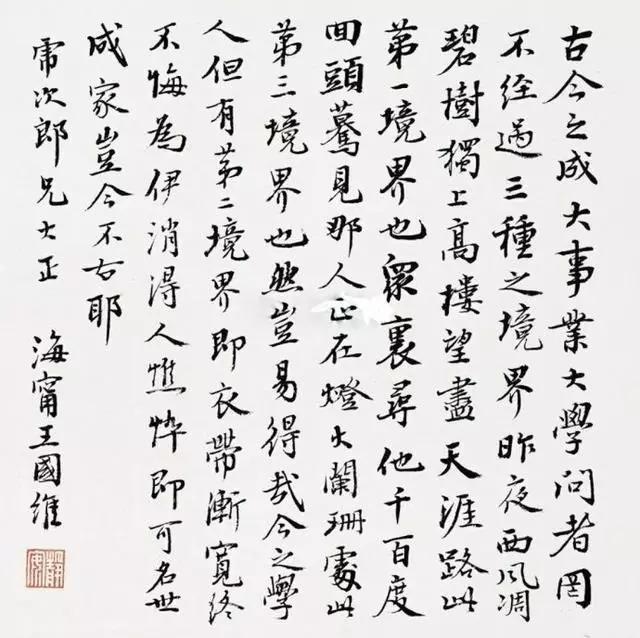 古今之成大事業大學問者罔
不經過三種之境界昨夜西風凋
碧樹獨上高樓望盡天涯路此
第一境界也眾裏尋他千百度
回頭驀見那人正在燈火闌珊處此
第三境界也然豈易得哉今之學
人但有第二境界即衣帶漸寬終
不悔為伊消得人憔悴即可名世
成家豈今不古耶
虎次郎兄大正
海甯王國維
靜安